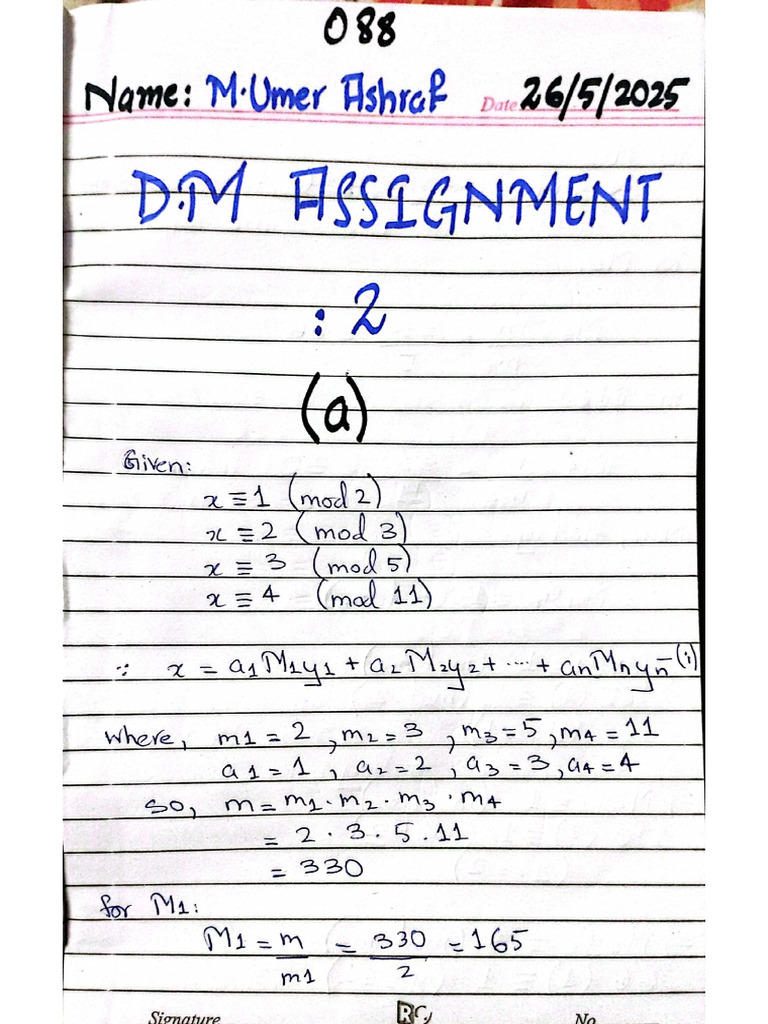 088
Name: M.Umer Ashraf Date 26/5/2025
D.M ASSIGNMENT
: 2
(a)
Given:
x ≡ 1 (mod 2)
x ≡ 2 (mod 3)
x ≡ 3 (mod 5)
x ≡ 4 (mod 11)
∵ x = a1M1y1 + a2M2y2 + ... + anMnyn - (i)
where, m1 = 2 , m2 = 3 , m3 = 5 , m4 = 11
a1 = 1 , a2 = 2 , a3 = 3 , a4 = 4
so, m = m1 · m2 · m3 · m4
= 2 · 3 · 5 · 11
= 330
for M1:
M1 = m/m1 = 330/2 = 165
Signature No